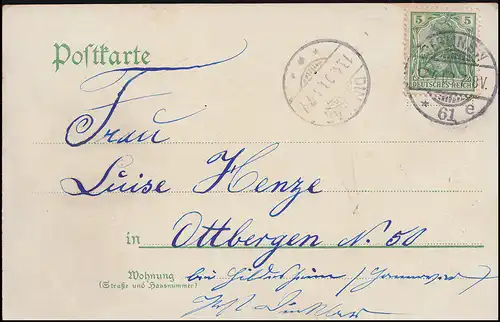 Postkarte
5 5
DEUTSCHES REICH
61 e
Frau
Luise Henze
in Ottbergen N. 50
Wohnung bei Hildesheim / Hannover /
(Straße und Hausnummer)